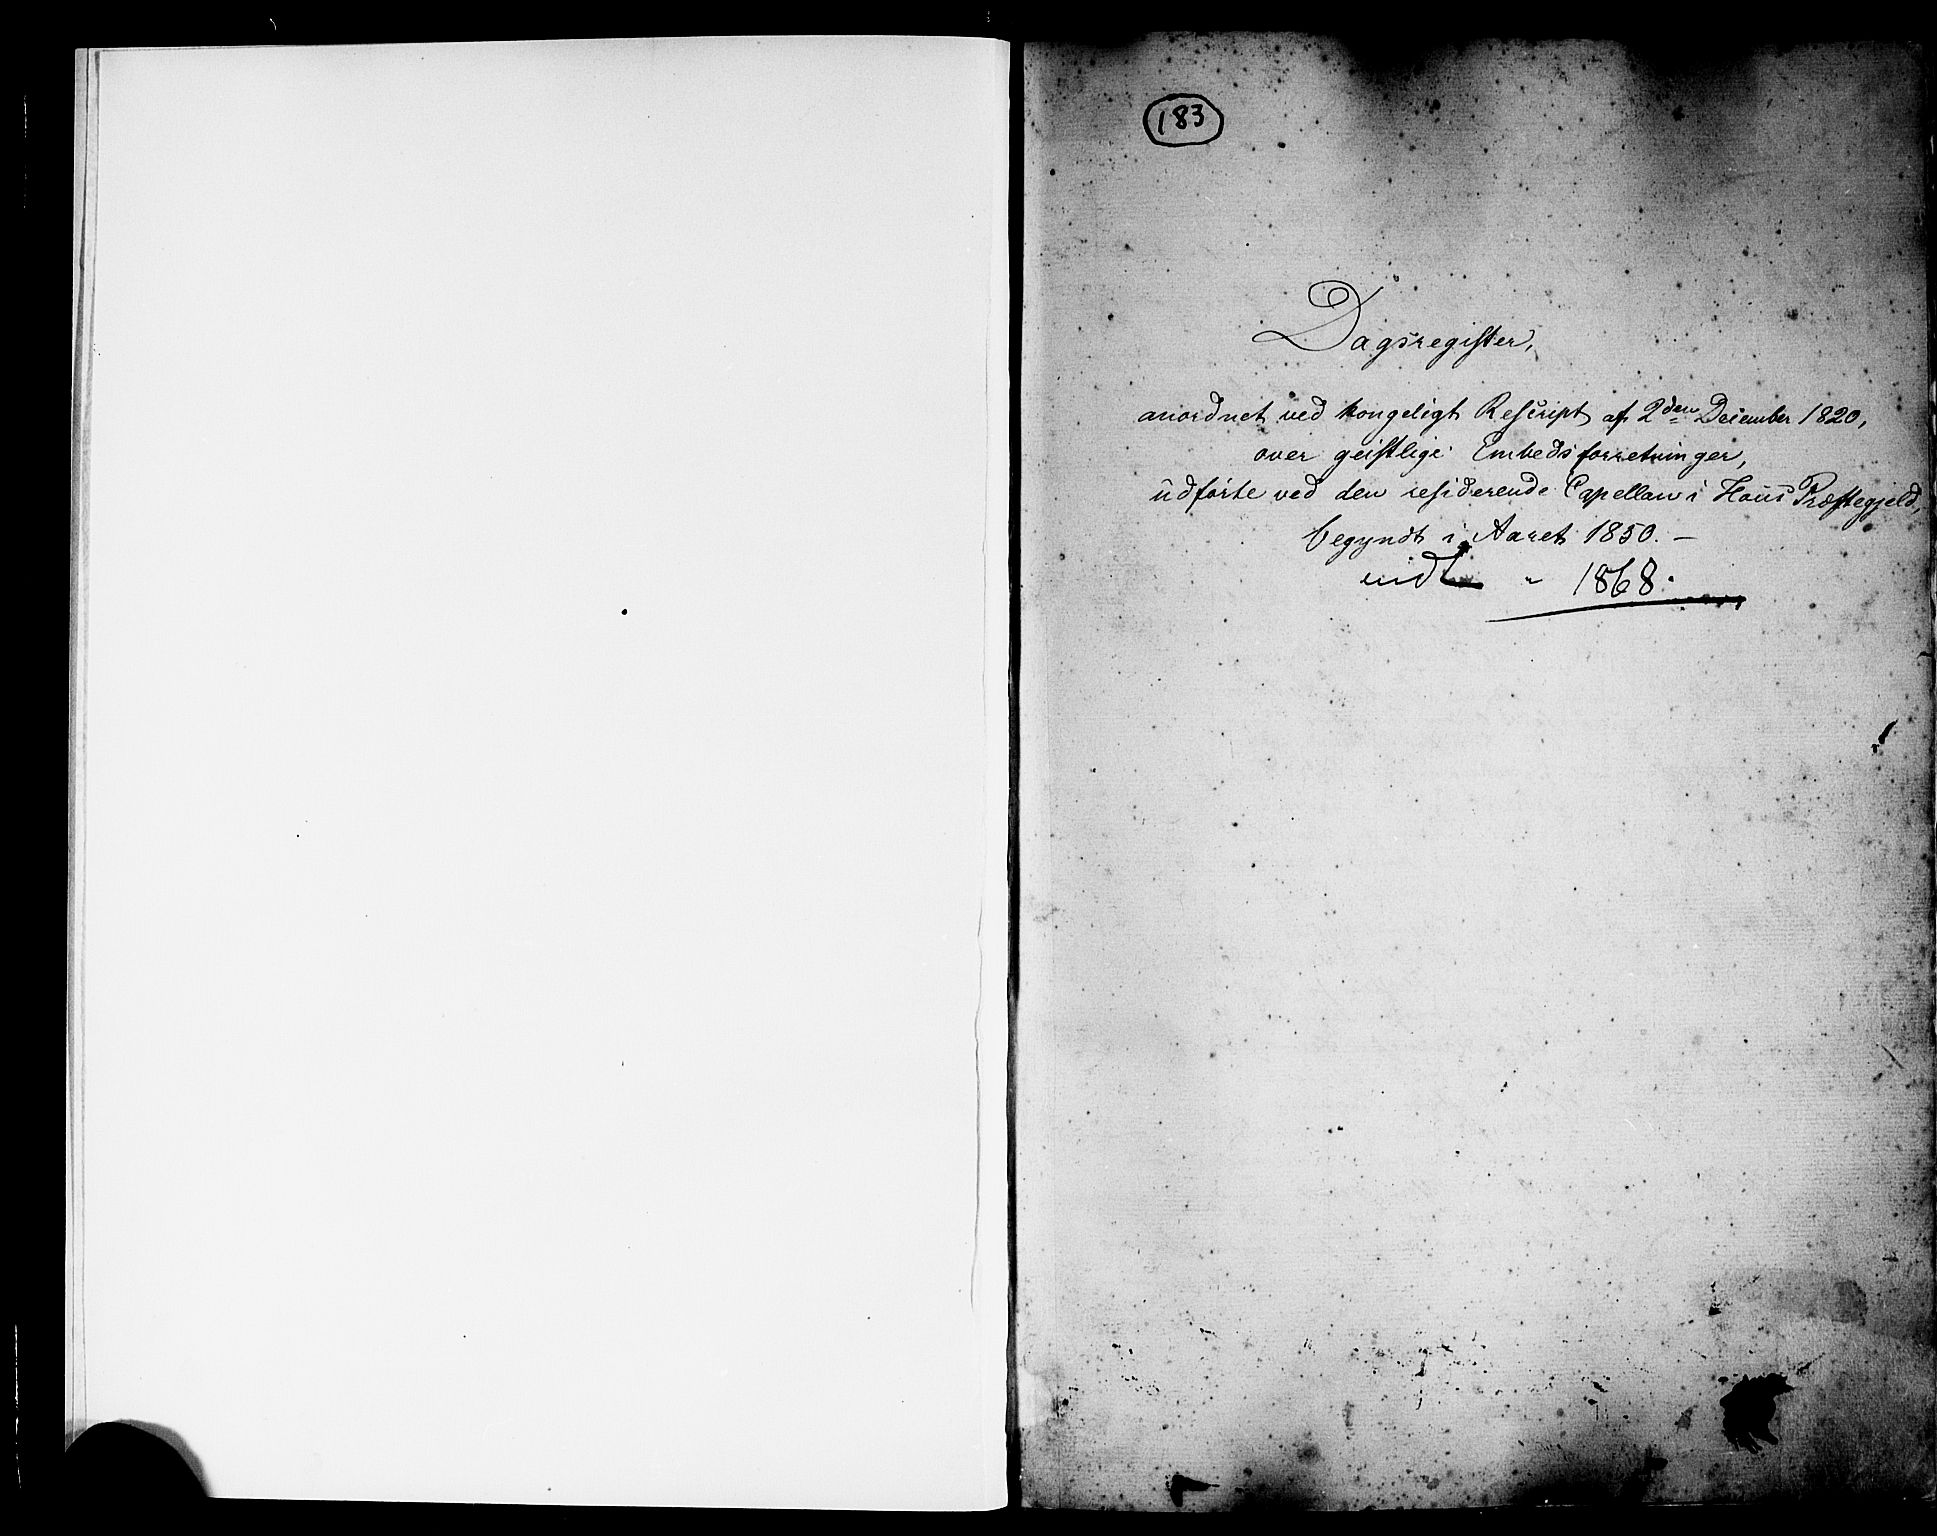 183
Dagsregister,
anordnet ved kongeligt Rescript af 2den December 1820,
over geistlige Embedsforretninger,
udførte ved den residerende Capellan i Haus Præstegjeld,
begyndt i Aaret 1850. –
endt " 1868.